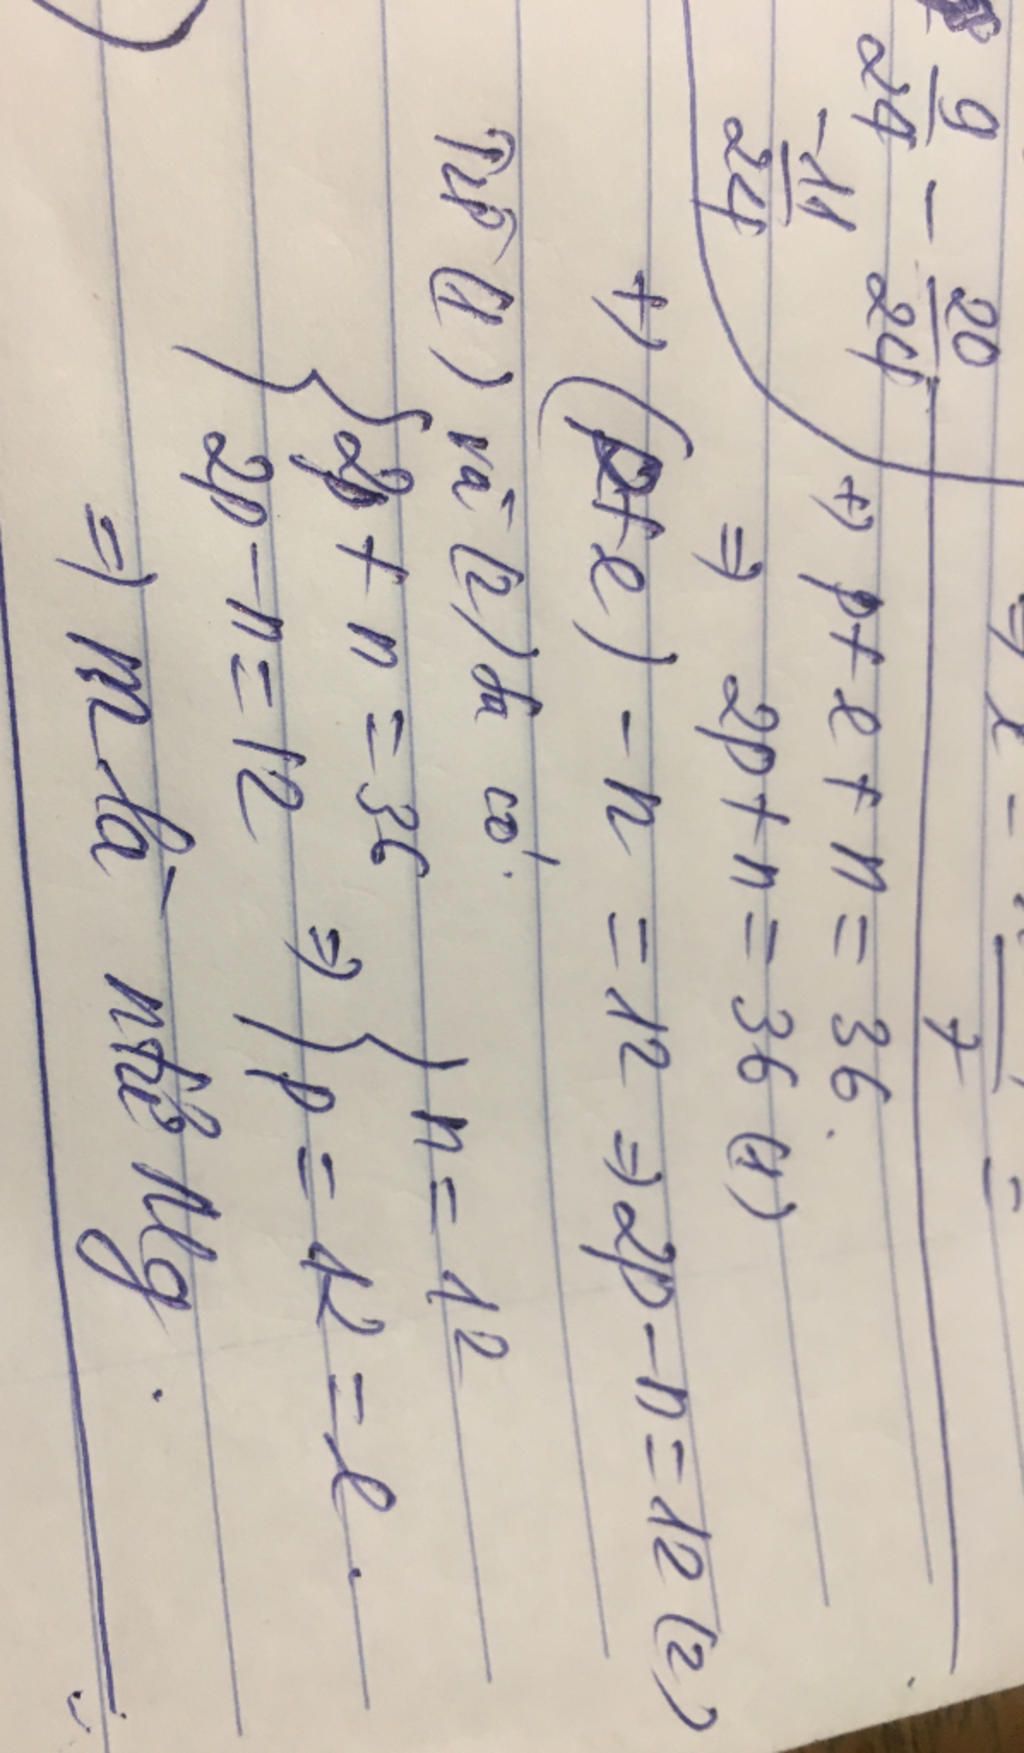 9/24 - 20/24
-11/24
+) p + e + n = 36.
=> 2p + n = 36 (1)
+) (p+e) - n = 12 => 2p - n = 12 (2)
Từ (1) và (2) ta có:
{ 2p + n = 36
2p - n = 12 => { n = 12
p = 12 = e.
=> m là Mg.